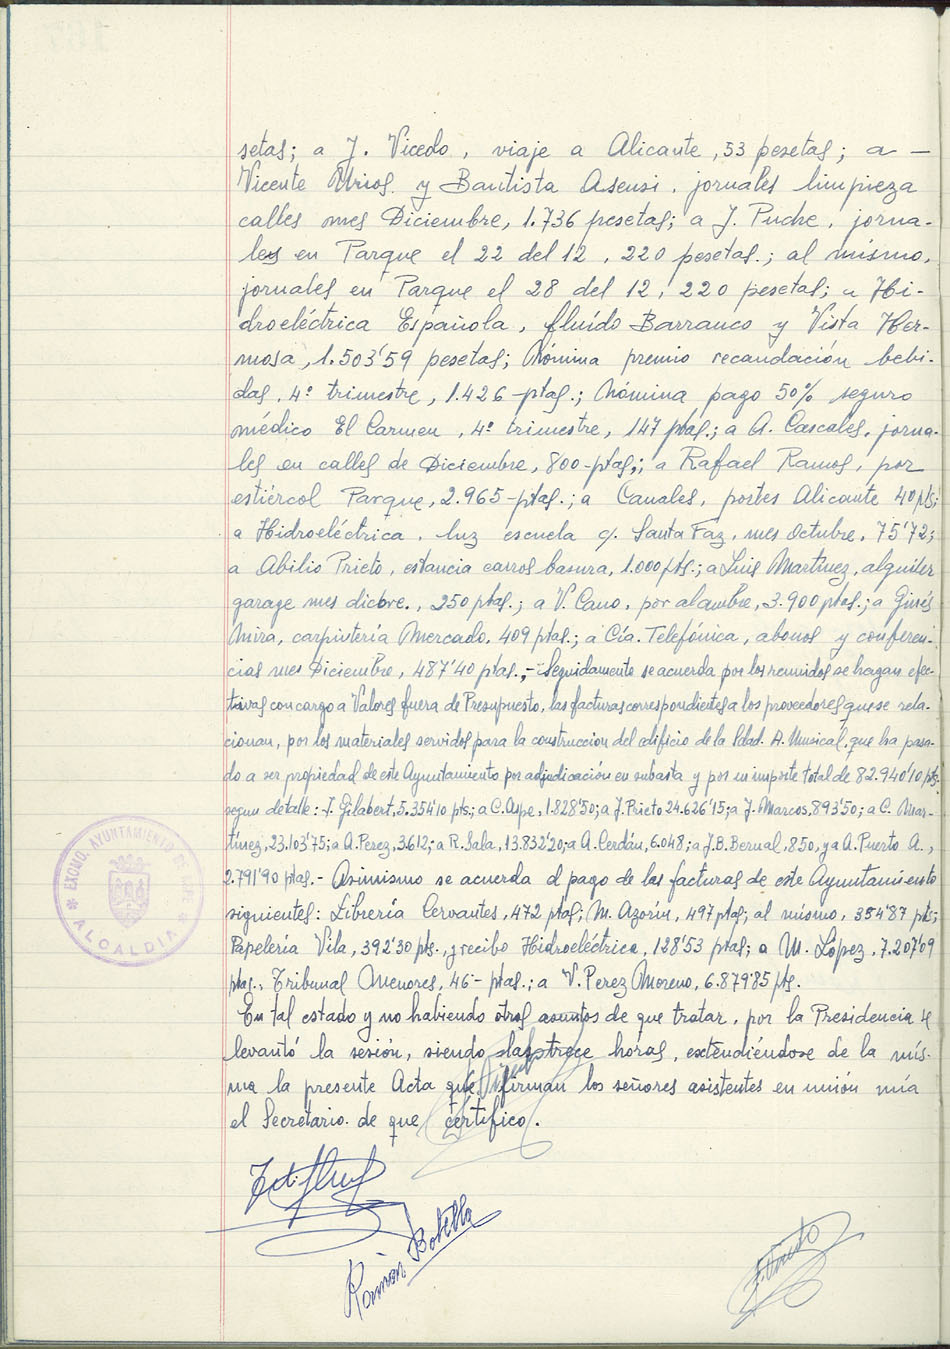 setas; a J. Vicedo, viaje a Alicante, 53 pesetas; a —
Vicente Urios y Bautista Asensi, jornales limpieza
calles mes Diciembre, 1.736 pesetas; a J. Puche, jorna-
les en Parque el 22 del 12, 220 pesetas.; al mismo,
jornales en Parque el 28 del 12, 220 pesetas; a Hi-
droeléctrica Española, fluído Barranco y Vista Her-
mosa, 1.503'59 pesetas; Nómina premio recaudación bebi-
das, 4º trimestre, 1.426-ptas.; Nómina pago 50% seguro
médico El Carmen, 4º trimestre, 147 ptas.; a A. Cascales, jorna-
les en calles de Diciembre, 800-ptas.; a Rafael Ramos, por
estiércol Parque, 2.965-ptas.; a Canales, portes Alicante 40 pts;
a Hidroeléctrica, luz escuela c/. Santa Faz, mes Octubre, 75'72;
a Abilio Prieto, estancia carros basura, 1.000 pts.; a Luis Martínez, alquiler
garage mes dicbre., 250 ptas.; a V. Cano, por alambre, 3.900 ptas.; a Ginés
Mira, carpintería Mercado, 409 ptas.; a Cía. Telefónica, abonos y conferen-
cias mes Diciembre, 487'40 ptas.,- Seguidamente se acuerda por los reunidos se hagan efec-
tivas con cargo a Valores fuera de Presupuesto, las facturas correspondientes a los proveedores que se rela-
cionan, por los materiales servidos para la construccion del edificio de la Sdad. A. Musical, que ha pasa-
do a ser propiedad de este Ayuntamiento por adjudicación en subasta y por un importe total de 82.940'10 pts.
segun detalle: J. Gilabert, 5.354'10 pts.; a C. Aspe, 1.828'50; a J. Prieto 24.626'15; a J. Marcos, 893'50; a C. Mar-
tínez, 23.103'75; a A. Perez, 3.612; a R. Sala, 13.832'20; a A. Cerdán, 6.048; a J.B. Bernal, 850, y a A. Puerto A.,
2.791'90 ptas.- Asimismo se acuerda el pago de las facturas de este Ayuntamiento
siguientes: Librería Cervantes, 472 ptas; M. Azorín, 497 ptas; al mismo, 354'87 pts;
Papelería Vila, 392'30 pts., y recibo Hidroeléctrica, 128'53 ptas; a M. López, 7.207'09
ptas., Tribunal Menores, 46- ptas.; a V. Perez Moreno, 6.879'85 pts.
En tal estado y no habiendo otros asuntos de que tratar, por la Presidencia se
levantó la sesión, siendo las trece horas, extendiéndose de la mis-
ma la presente Acta que firman los señores asistentes en unión mía
el Secretario de que certifico.
Ramón Botella
EXCMO. AYUNTAMIENTO DE ASPE
* ALCALDIA *